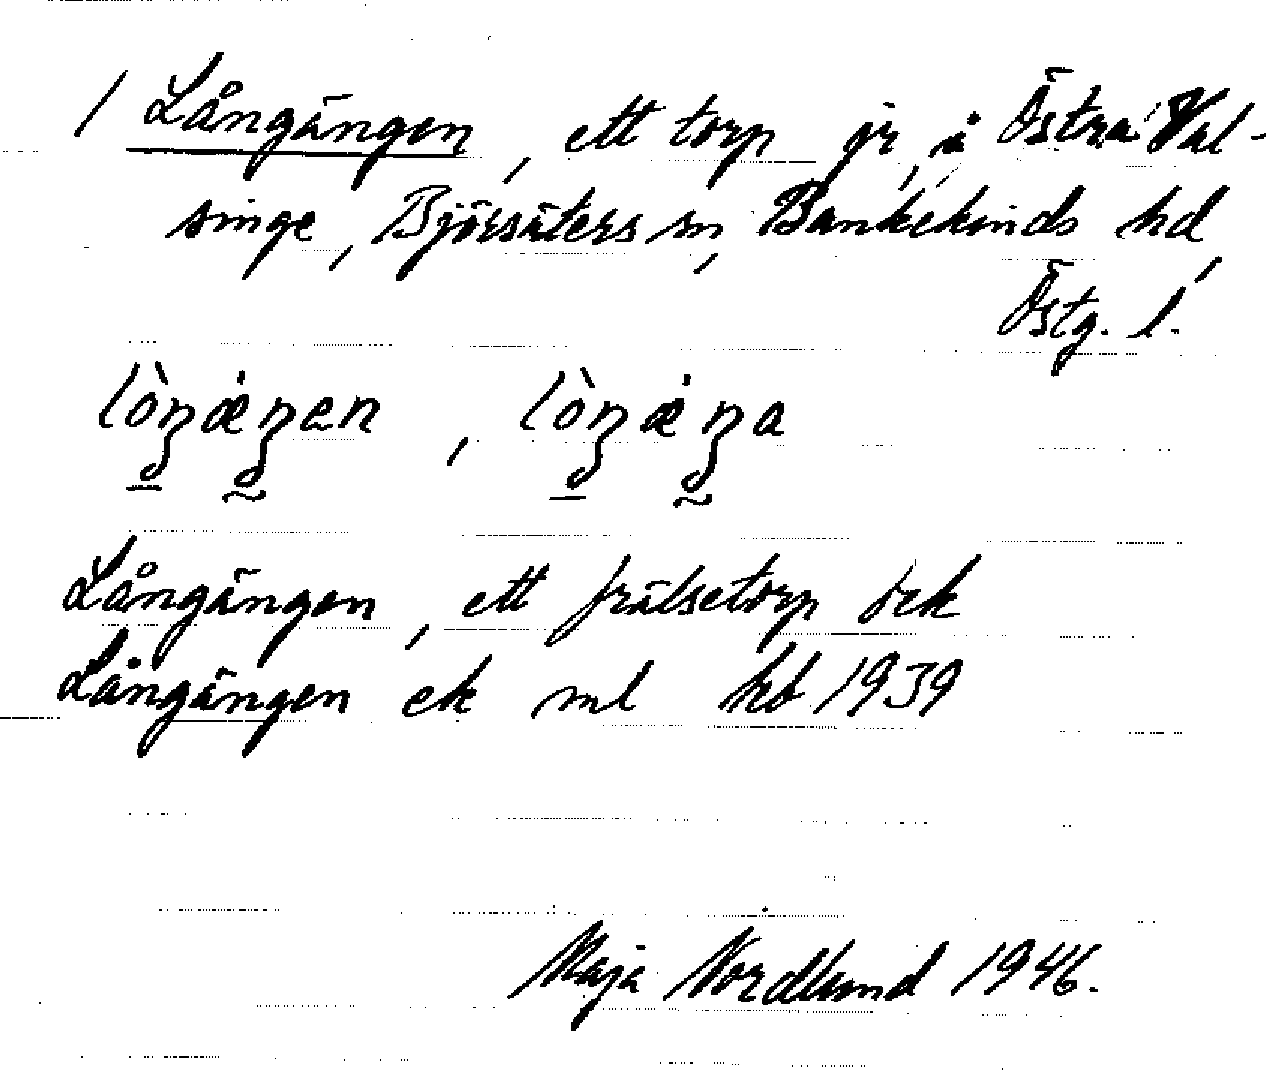 / Långängen, ett torp fr, å Östra Val-
singe, Björsäters sn, Bankekinds hd,
Östg. l.
lòŋæŋen, lòŋæŋa
Långängen, ett frälsetorp öek
Långängen ek ml hb 1939
Maja Nordlund 1946.